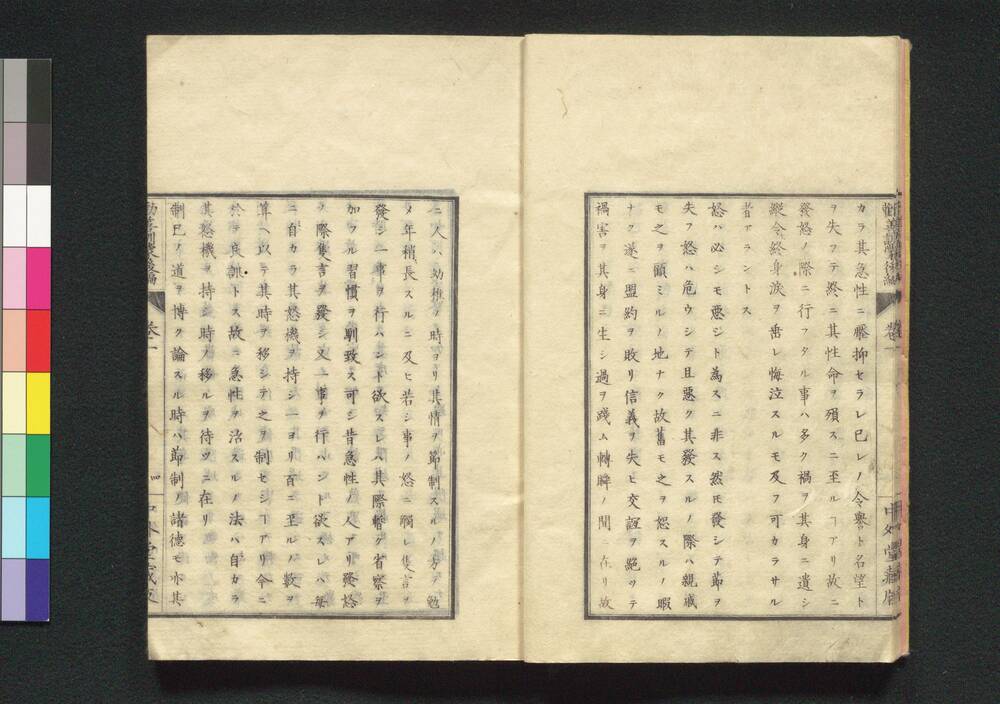 カラ其急性ニ壓抑セラレ已レノ令譽ト名望ト
ヲ失フテ終ニ其性命ヲ殞スニ至ルヿアリ故ニ
發怒ノ際ニ行フタル事ハ多ク禍ヲ其身ニ遺シ
縱令終身涙ヲ垂レ悔泣スルモ及フ可カラサル
者アラントス
怒ハ必シモ惡ジト為スニ非ス然𪜈發シテ節ヲ
失フ怒ハ危ウシテ且惡ク其發スルノ際ハ親戚
モ之ヲ顧ミルノ地ナク故舊モ之ヲ恕スルノ暇
ナク遂ニ盟約ヲ敗リ信義ヲ失ヒ交誼ヲ絶ツテ
禍害ヲ其身ニ生シ過ヲ踐ム轉瞬ノ間ニ在リ故
ニ人ハ幼稚ノ時ヨリ其情ヲ節制スルノ方ヲ勉
メ年稍長スルニ及ヒ若シ事ノ怒ニ觸レ隻言ヲ
發シ一事ヲ行ハント欲スレハ其際輙ク省察ヲ
加フル習慣ヲ馴致ス可シ昔急性ノ人アリ發怒
ノ際隻言ヲ發シ又一事ヲ行ハント欲スレハ每
ニ自カラ其怒機ヲ持シ一ヨリ百ニ至ルノ數ヲ
算ヘ以テ其時ヲ移シテ之ヲ制セシヿアリ今ニ
於テ良訓トス故ニ急性ヲ治スルノ法ハ自カラ
其怒機ヲ持シ時ノ移ルヲ待ツニ在リ
制已ノ道ヲ博ク論スル時ハ節制ノ諸德モ亦其
卷一
四